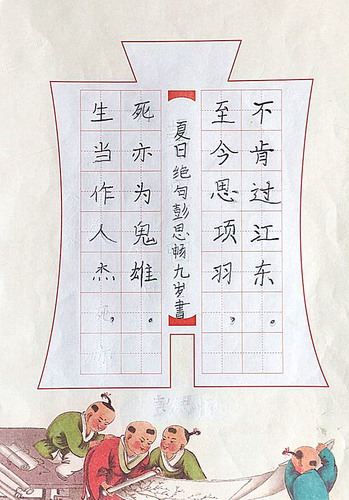 生当作人杰，
死亦为鬼雄。
夏日绝句彭思畅九岁書
至今思项羽，
不肯过江东。